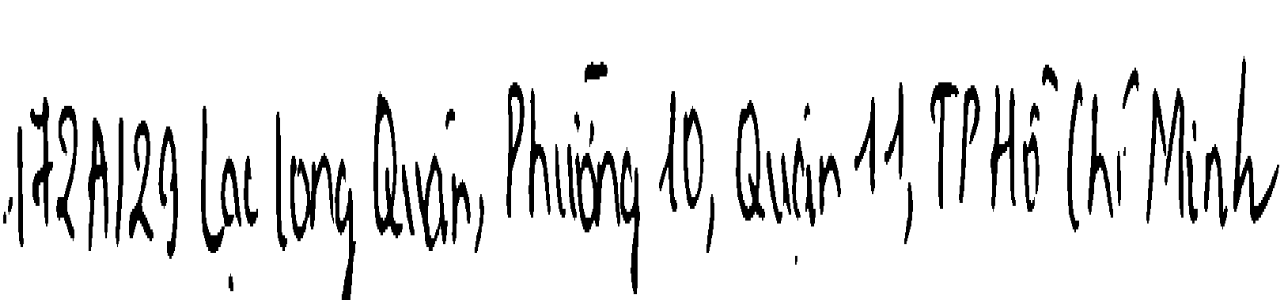 172A/29 Lạc Long Quân, Phường 10, Quận 11, TP Hồ Chí Minh